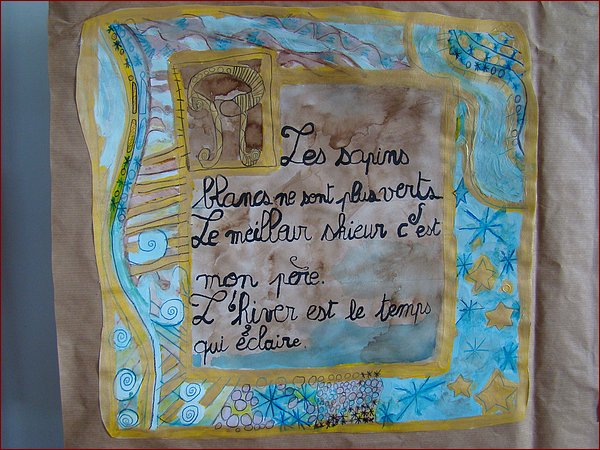 Les sapins
blancs ne sont plus verts.
Le meilleur skieur c'est
mon père.
L'hiver est le temps
qui éclaire.